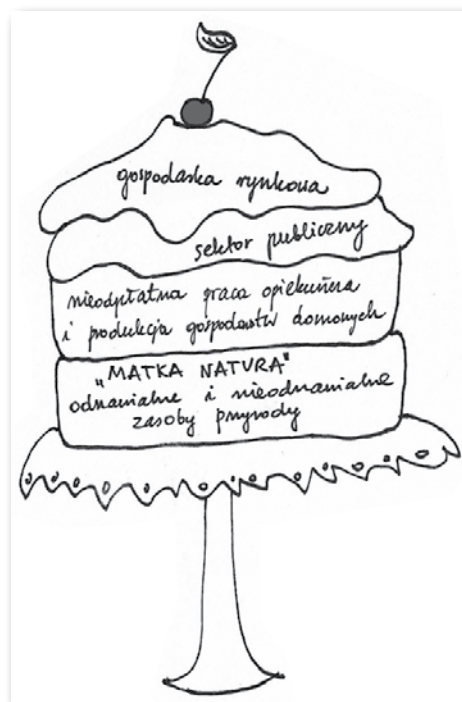 gospodarka rynkowa
sektor publiczny
nieodpłatna praca opiekuńcza
i produkcja gospodarstw domowych
„MATKA NATURA"
odnawialne i nieodnawialne
zasoby przyrody